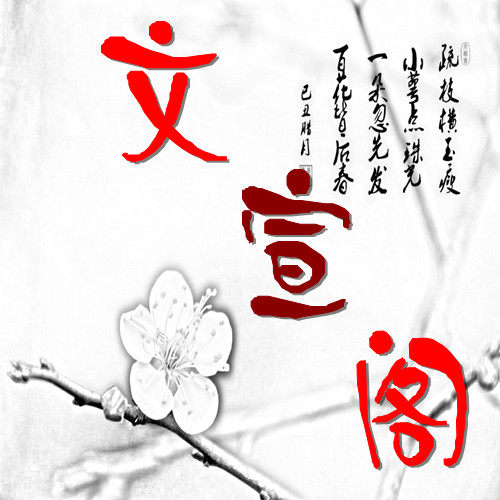 文宣阁
疏枝横玉瘦
小萼点珠光
一朵忽先发
百花皆后春
己丑腊月